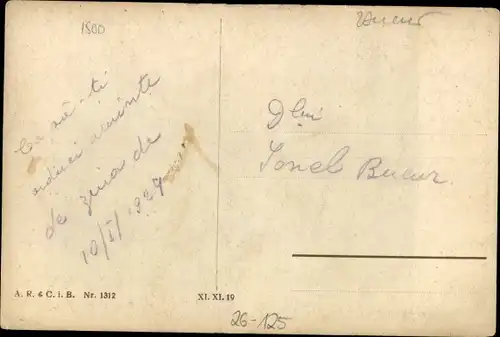 1800
Ca să-ți
aduci aminte
de ziua de
10/I/1929
Dlui
Ionel Bucur
A. R. & C. i. B. Nr. 1312
XI. XI. 19
26-125